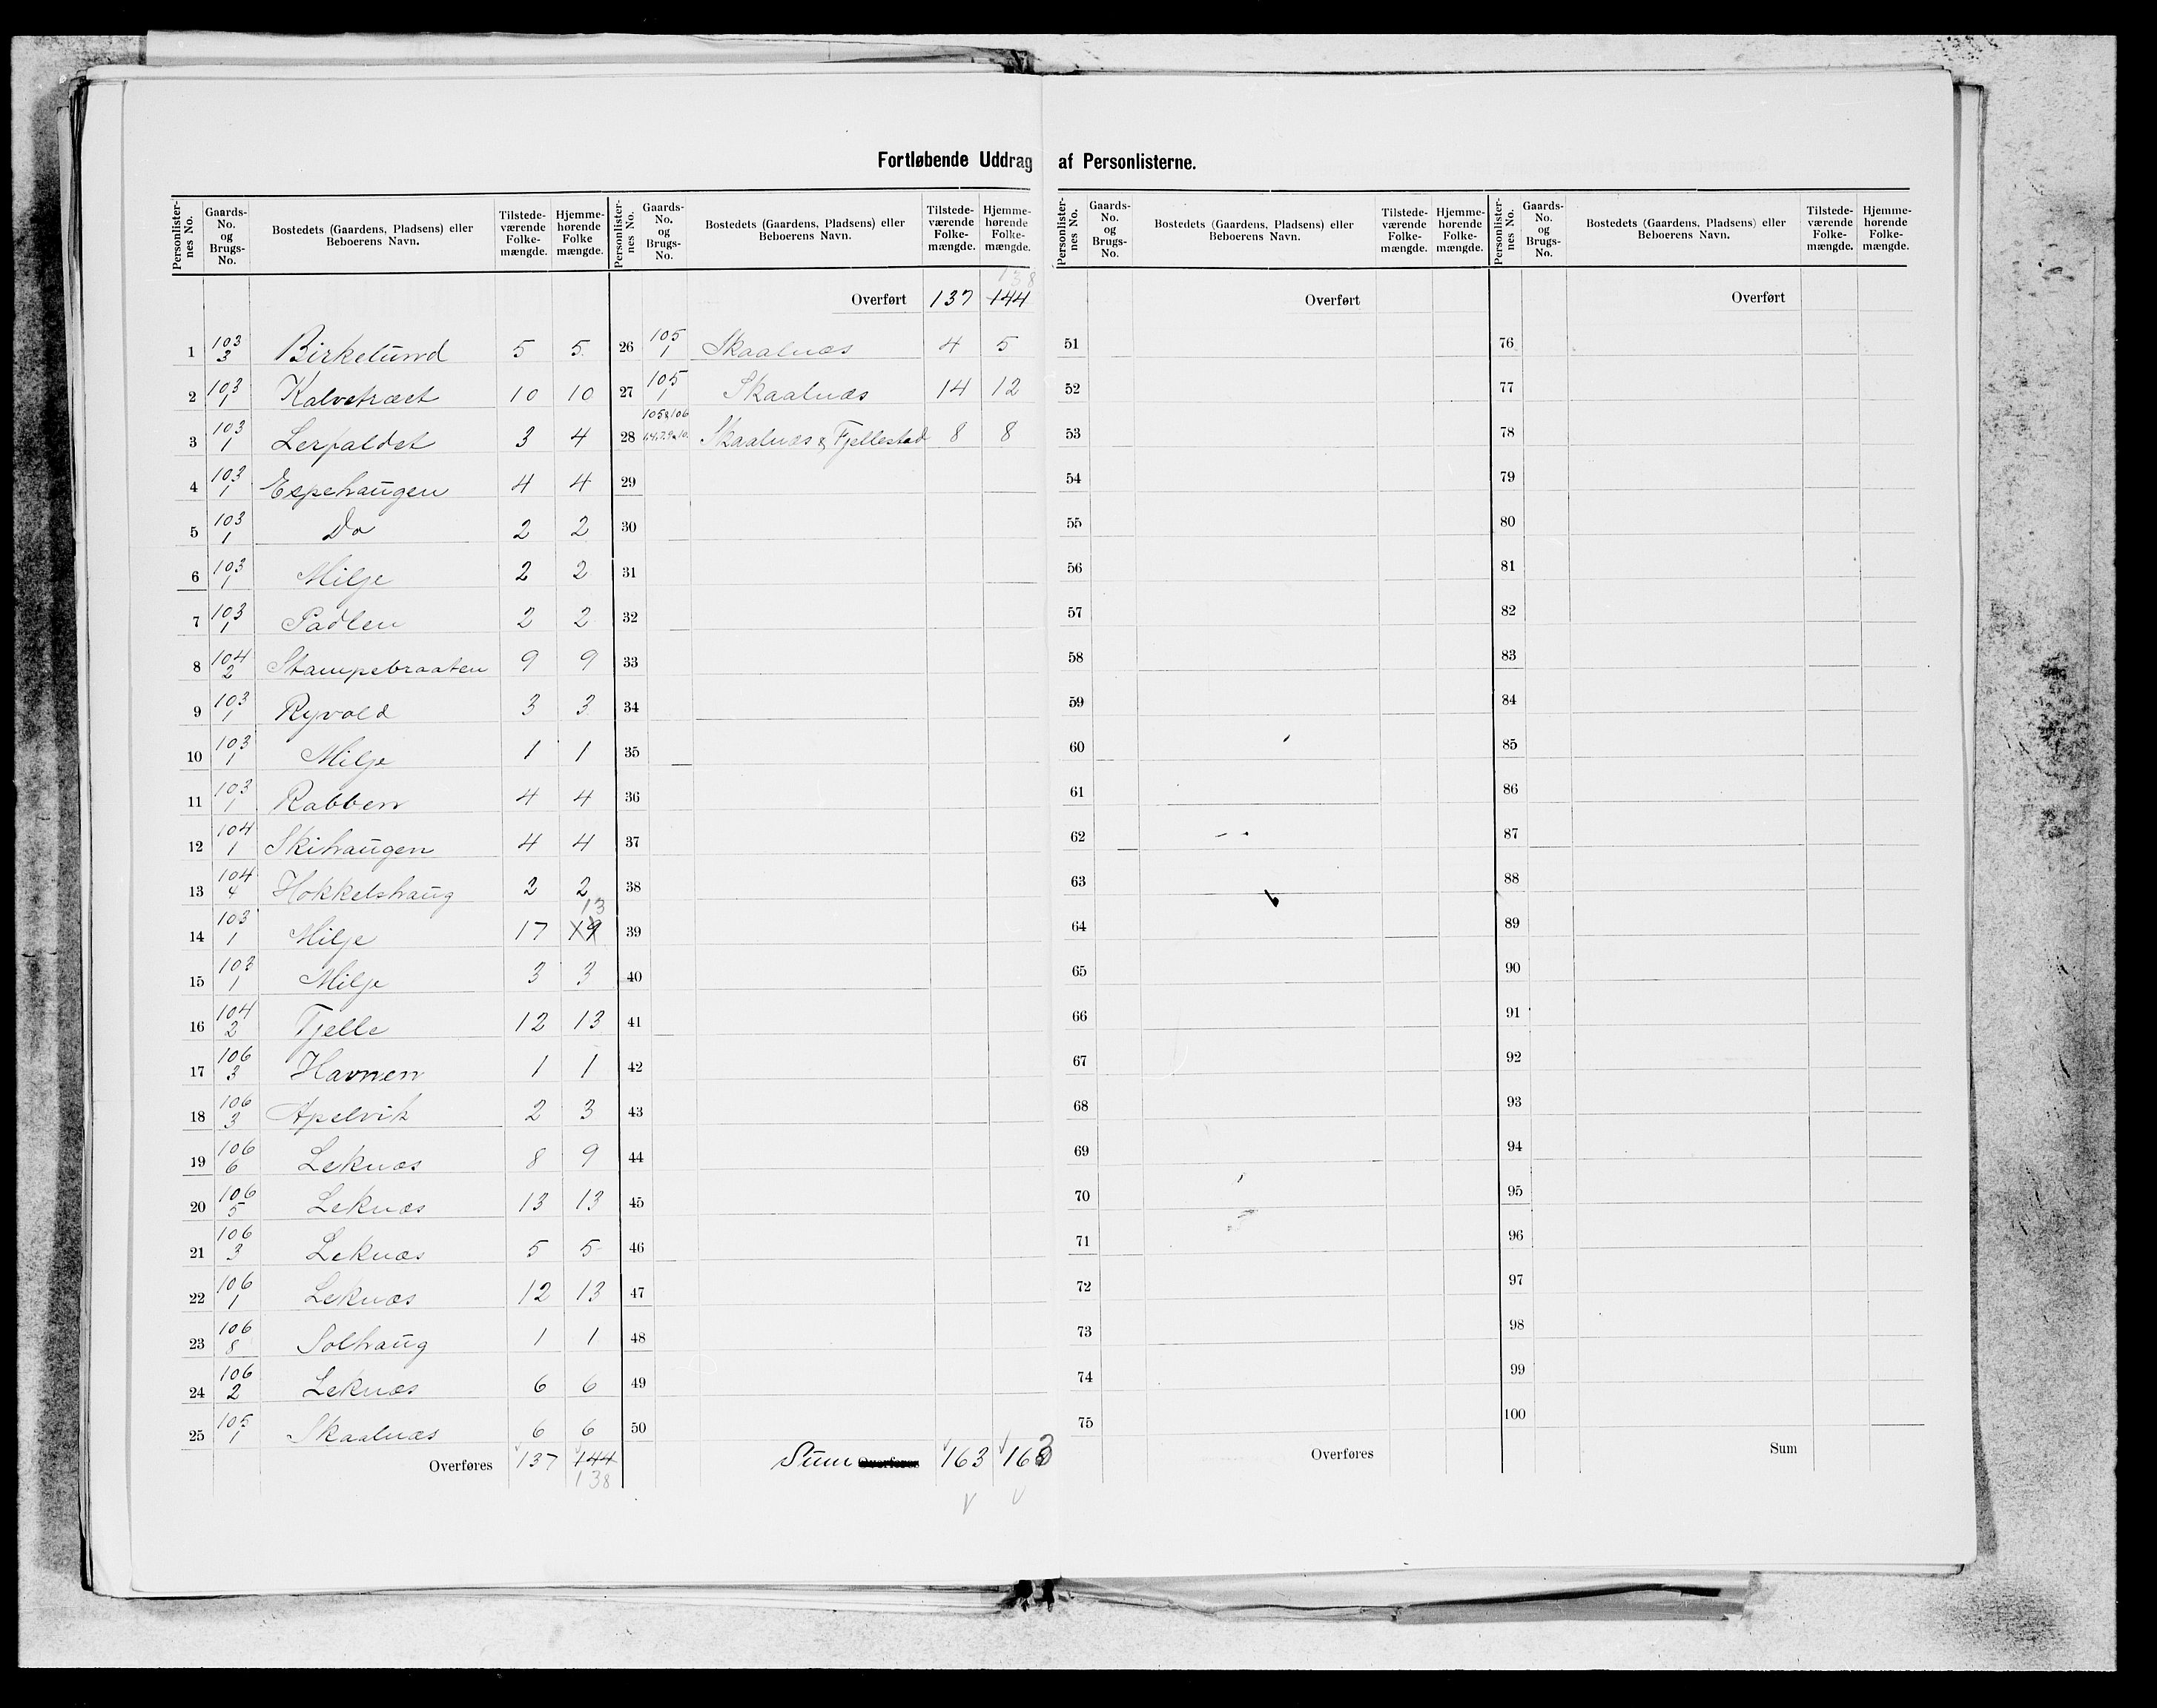 Fortløbende Uddrag af Personlisterne.
Personlisternes No. | Gaards-No. og Brugs-No. | Bostedets (Gaardens, Pladsens) eller Beboerens Navn. | Tilstedeværende Folkemængde. | Hjemmehørende Folkemængde.
1 | 103 3 | Birkelund | 5 | 5
2 | 103 1 | Kalvetræet | 10 | 10
3 | 103 1 | Lerfaldet | 3 | 4
4 | 103 1 | Espehaugen | 4 | 4
5 | 103 1 | Do | 2 | 2
6 | 103 1 | Milje | 2 | 2
7 | 103 1 | Padlen | 2 | 2
8 | 104 2 | Stampebraaten | 9 | 9
9 | 103 1 | Ryvold | 3 | 3
10 | 103 1 | Milje | 1 | 1
11 | 103 1 | Rabben | 4 | 4
12 | 104 1 | Skihaugen | 4 | 4
13 | 104 4 | Hokkelshaug | 2 | 2
14 | 103 1 | Milje | 17 | 19 13
15 | 103 1 | Milje | 3 | 3
16 | 104 2 | Tjelle | 12 | 13
17 | 106 3 | Havnen | 1 | 1
18 | 106 3 | Apelvik | 2 | 3
19 | 106 6 | Leknæs | 8 | 9
20 | 106 5 | Leknæs | 13 | 13
21 | 106 3 | Leknæs | 5 | 5
22 | 106 1 | Leknæs | 12 | 13
23 | 106 8 | Solhaug | 1 | 1
24 | 106 2 | Leknæs | 6 | 6
25 | 105 1 | Skaalnæs | 6 | 6
Overføres | 137 | 144 138
Personlisternes No. | Gaards-No. og Brugs-No. | Bostedets (Gaardens, Pladsens) eller Beboerens Navn. | Tilstedeværende Folkemængde. | Hjemmehørende Folkemængde.
Overført | 137 | 144 138
26 | 105 1 | Skaalnæs | 4 | 5
27 | 105 1 | Skaalnæs | 14 | 12
28 | 105&106 | Skaalnæs & Fjellestad | 8 | 8
29
30
31
32
33
34
35
36
37
38
39
40
41
42
43
44
45
46
47
48
49
50
Sum Overføres | 163 | 163
Personlisternes No. | Gaards-No. og Brugs-No. | Bostedets (Gaardens, Pladsens) eller Beboerens Navn. | Tilstedeværende Folkemængde. | Hjemmehørende Folkemængde.
Overført
51
52
53
54
55
56
57
58
59
60
61
62
63
64
65
66
67
68
69
70
71
72
73
74
75
Overføres
Personlisternes No. | Gaards-No. og Brugs-No. | Bostedets (Gaardens, Pladsens) eller Beboerens Navn. | Tilstedeværende Folkemængde. | Hjemmehørende Folkemængde.
Overført
76
77
78
79
80
81
82
83
84
85
86
87
88
89
90
91
92
93
94
95
96
97
98
99
100
Sum